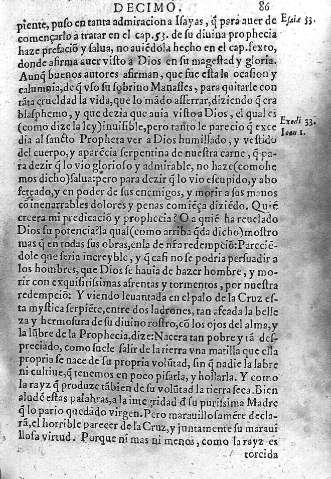 DECIMO. 86
piente, puso en tanta admiracion a Isayas, q̃ para auer de
començarlo a tratar en el cap. 53. de su diuina prophecia
haze prefacio y salua, no auiẽdola hecho en el cap. sexto,
donde afirma auer visto a Dios en su magestad y gloria.
Aunq̃ buenos autores afirman, que fue esta la ocasion y
calumnia, de q̃ vso su sobrino Manasses, para quitarle con
tãta crueldad la vida, que lo mãdo asserrar, diziendo q̃ era
blasphemo, y que dezia que auia visto a Dios, el qual es
(como dize la ley) inuisible, pero tanto le parecio q̃ exce
dia al sancto Propheta ver a Dios humillado, y vestido
del cuerpo, y aparẽcia serpentina de nuestra carne, q̃ pa-
ra dezir q̃ lo vio glorioso y admirable, no haze (como he
mos dicho) salua: pero para dezir q̃ lo vio escupido, y abo
feteado, y en poder de sus enemigos, y morir a sus manos
cõ inenarrables dolores y penas comiẽça diziẽdo. Quiẽ
creera mi predicació y prophecia? O a quiẽ ha reuelado
Dios su potencia: la qual (como arriba q̃da dicho) mostro
mas q̃ en todas sus obras, en la de nr̃a redempciõ: Pareciẽ-
dole que seria increyble, y q̃ casi no se podria persuadir a
los hombres, que Dios se hauia de hazer hombre, y mo-
rir con exquisitissimas afrentas y tormentos, por nuestra
redempciõ: Y viendo leuantada en el palo de la Cruz es
ta mystica serpiẽte, entre dos ladrones, tan afeada la belle
za y hermosura de su diuino rostro, cõ los ojos del alma, y
la lũbre de la Prophecia, dize: Nacera tan pobre y tã des-
preciado, como suele salir de la tierra vna matilla que ella
propria se nace de su propria volũtad, sin q̃ nadie la labre
ni cultiue, q̃ tenemos en poco pisarla, y hollarla. Y como
la rayz q̃ produze tãbien de su volũtad la tierra seca. Bien
alude estas palabras, a la integridad d̃ su purissima Madre
q̃ lo pario quedãdo virgen. Pero marauillosamẽte decla-
rã, el horrible parecer de la Cruz, y juntamente su maraui
llosa virtud. Porque ni mas ni menos, como la rayz es
torcida
Esaie 53.
Exodi 33.
Ioan 1.